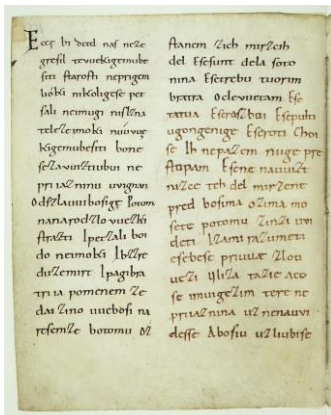 Ecce bi detd naſ neze
greſil tevuekigemube
ſiti ſtaroſti neprigem
lióki nikoligeſe pet
ſali neimugi niſlzna
teleze imoki nuúvue
kigemubeſiti bone
ſezavuiztiubui ne
priiazninu uvignan
Odſzlauuibosigę Potom
nanarodzlovuezki
ſtrazti Ipetzali boi
do neimoki Ibzzre
duzemirt Ipagibra
triia pomenem ze
dai zino uuebosi na
resemze botomu oz
ſtanem zich mirzcih
del Eſeſunt dela ſoto
nina Eſetrebu tuorim
bratra Oclevuetam Eſe
tatua Eſerazboi Eſepulti
ugongenige Eſeroti Choi
se Ih nepazem nuge pre
ſtopam Eſene nauuizt
nizce teh del mirzene
pred bosima ozima mo
sete potomu zinzi uvi
deti Izami razumeti
esebese priuuae zlou
uezi Uliza tazie aco
se imuigezim tere ne
priiaznina uznenauvi
desse Abosiu uzliubise